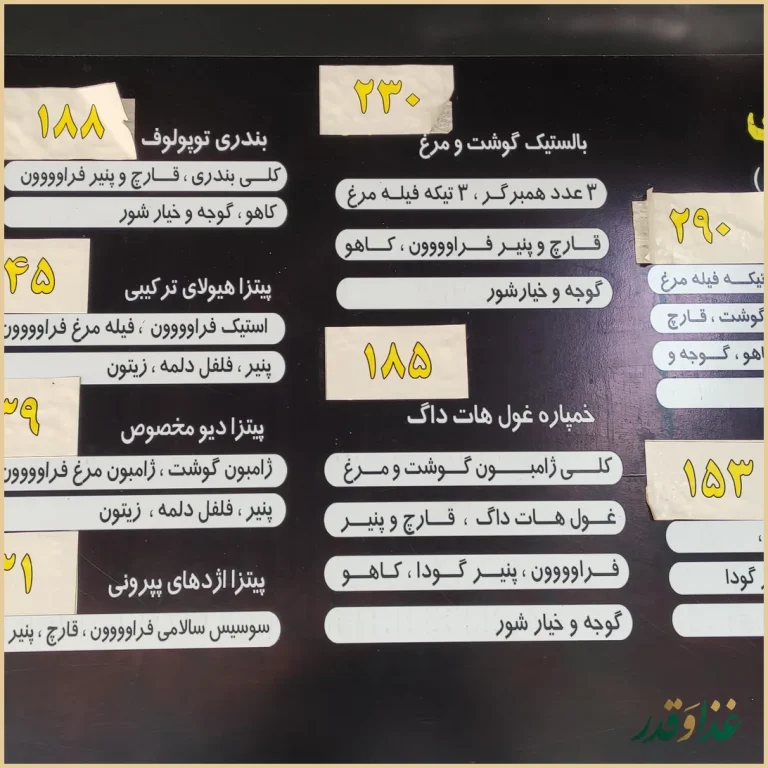 ۲۹۰
تیکه فیله مرغ
گوشت ، قارچ
کاهو ، گوجه و
۱۵۳
گودا
۲۳۰
بالستیک گوشت و مرغ
۳ عدد همبرگر ، ۳ تیکه فیله مرغ
قارچ و پنیر فراوووون ، کاهو
گوجه و خیارشور
۱۸۵
خمپاره غول هات داگ
کلی ژامبون گوشت و مرغ
غول هات داگ ، قارچ و پنیر
فراوووون ، پنیر گودا ، کاهو
گوجه و خیار شور
۱۸۸
بندری توپولوف
کلی بندری ، قارچ و پنیر فراوووون
کاهو ، گوجه و خیار شور
۴۵
پیتزا هیولای ترکیبی
استیک فراوووون ، فیله مرغ فراوووون
پنیر ، فلفل دلمه ، زیتون
۳۹
پیتزا دیو مخصوص
ژامبون گوشت ، ژامبون مرغ فراوووون
پنیر ، فلفل دلمه ، زیتون
۲۱
پیتزا اژدهای پپرونی
سوسیس سالامی فراوووون ، قارچ ، پنیر
غذا و قدر